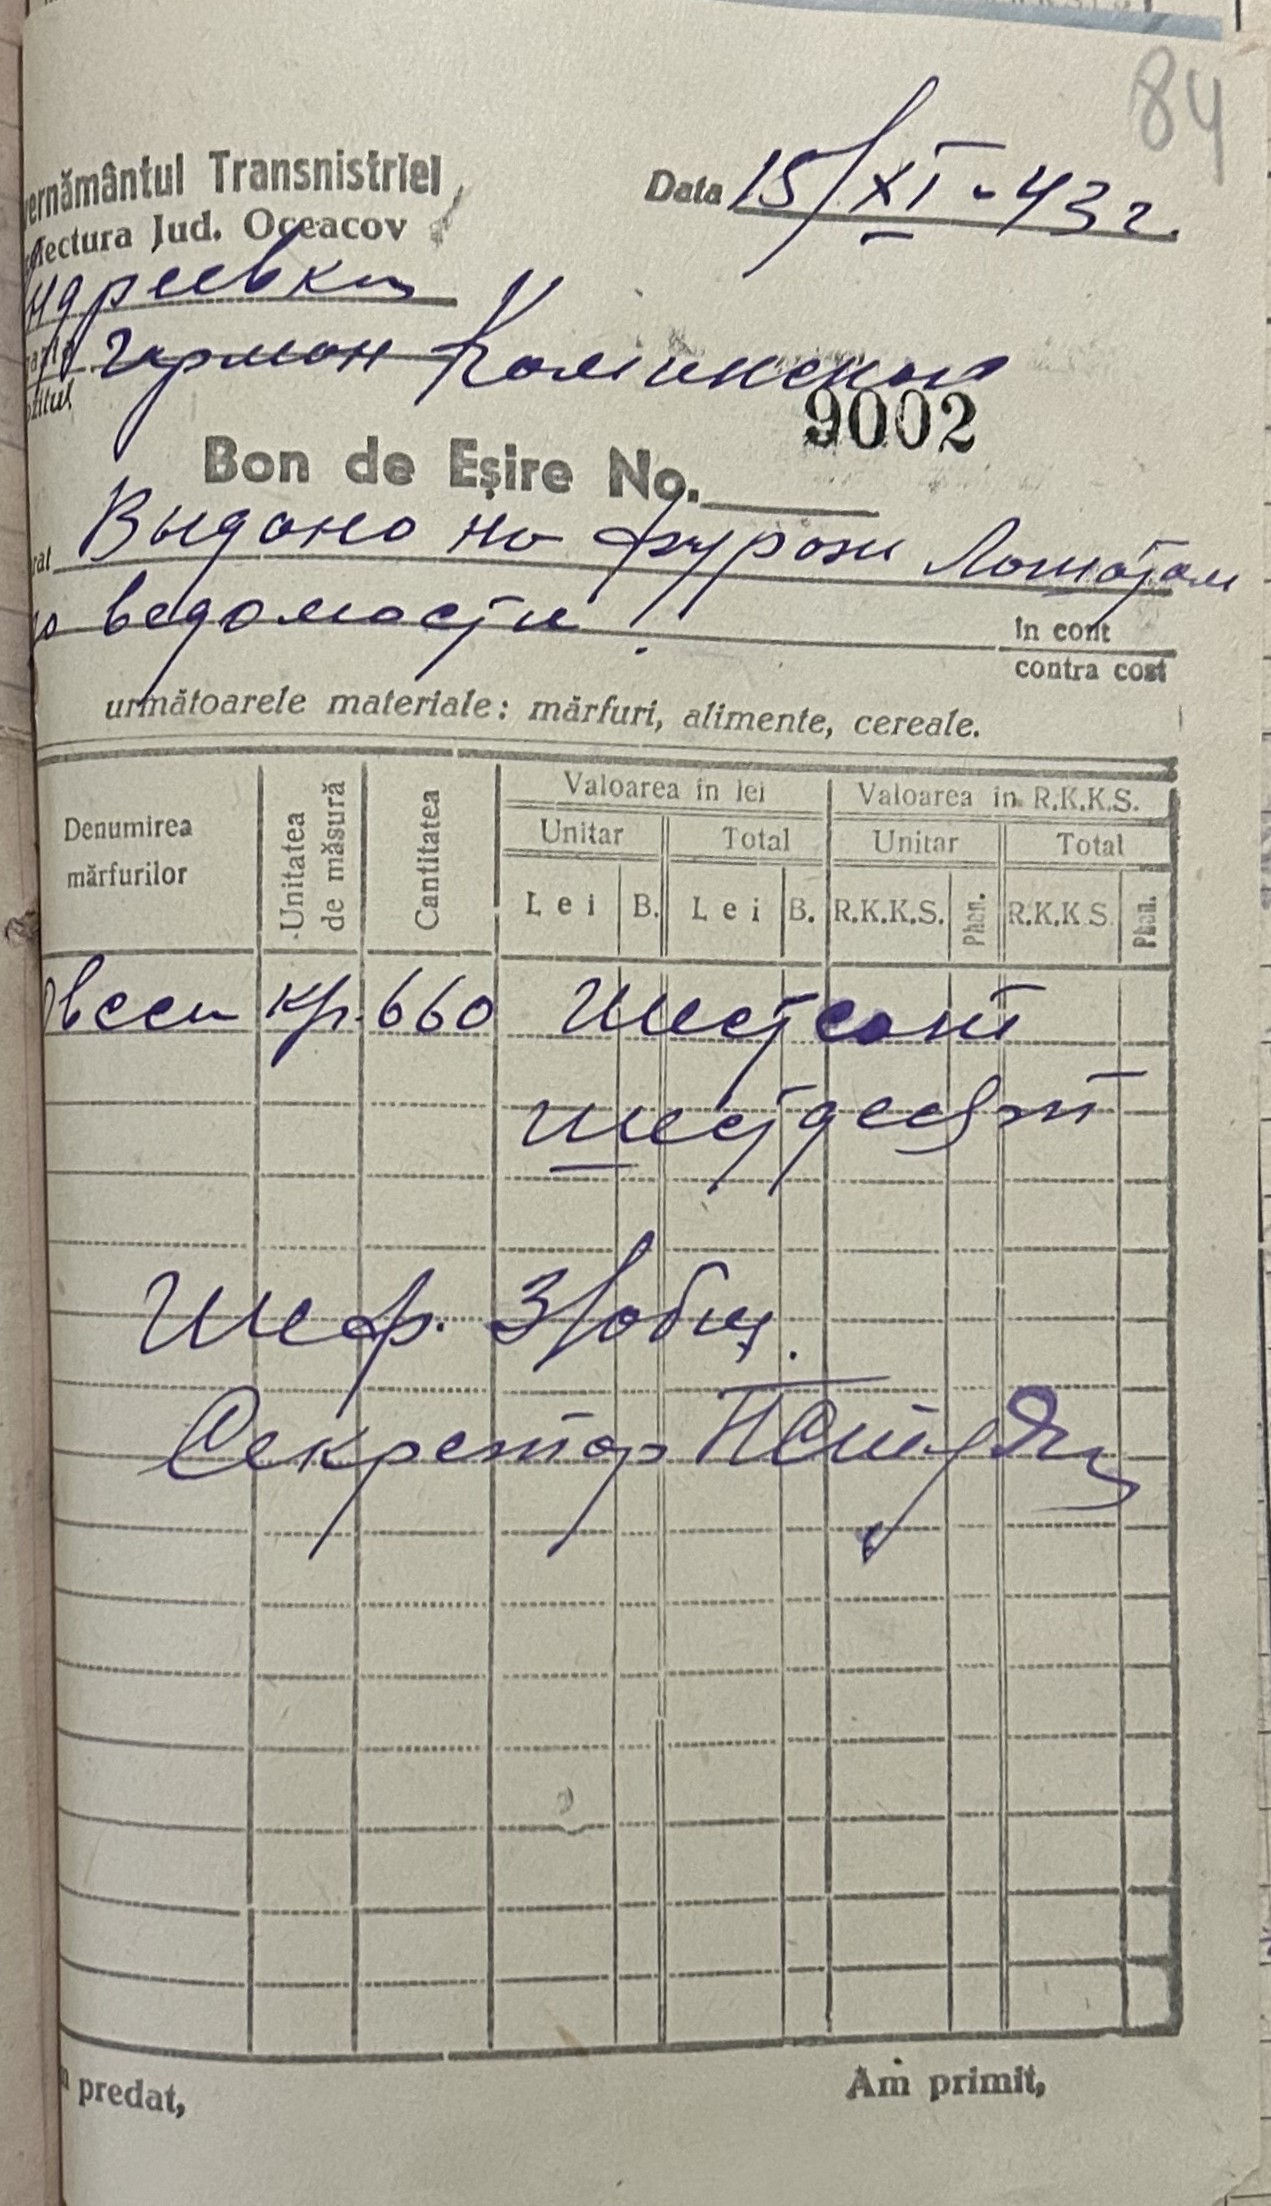 84
vernământul Transnistriei
fectura Jud. Oceacov
Data 15/XI-43 г.
ндреевка
9002
Bon de Eşire No.
Выдано на фураж лошадям
по ведомости
în cont
contra cost
următoarele materiale: mărfuri, alimente, cereale.
Denumirea mărfurilor Unitatea de măsură Cantitatea Valoarea în lei Valoarea în R.K.K.S.
Unitar Total Unitar Total
Lei B. Lei B. R.K.K.S. Phen. R.K.K.S. Phen.
Овсеи кгр. 660 Шестсот
шестдесят
Шеф.
Секретар
predat,
Am primit,